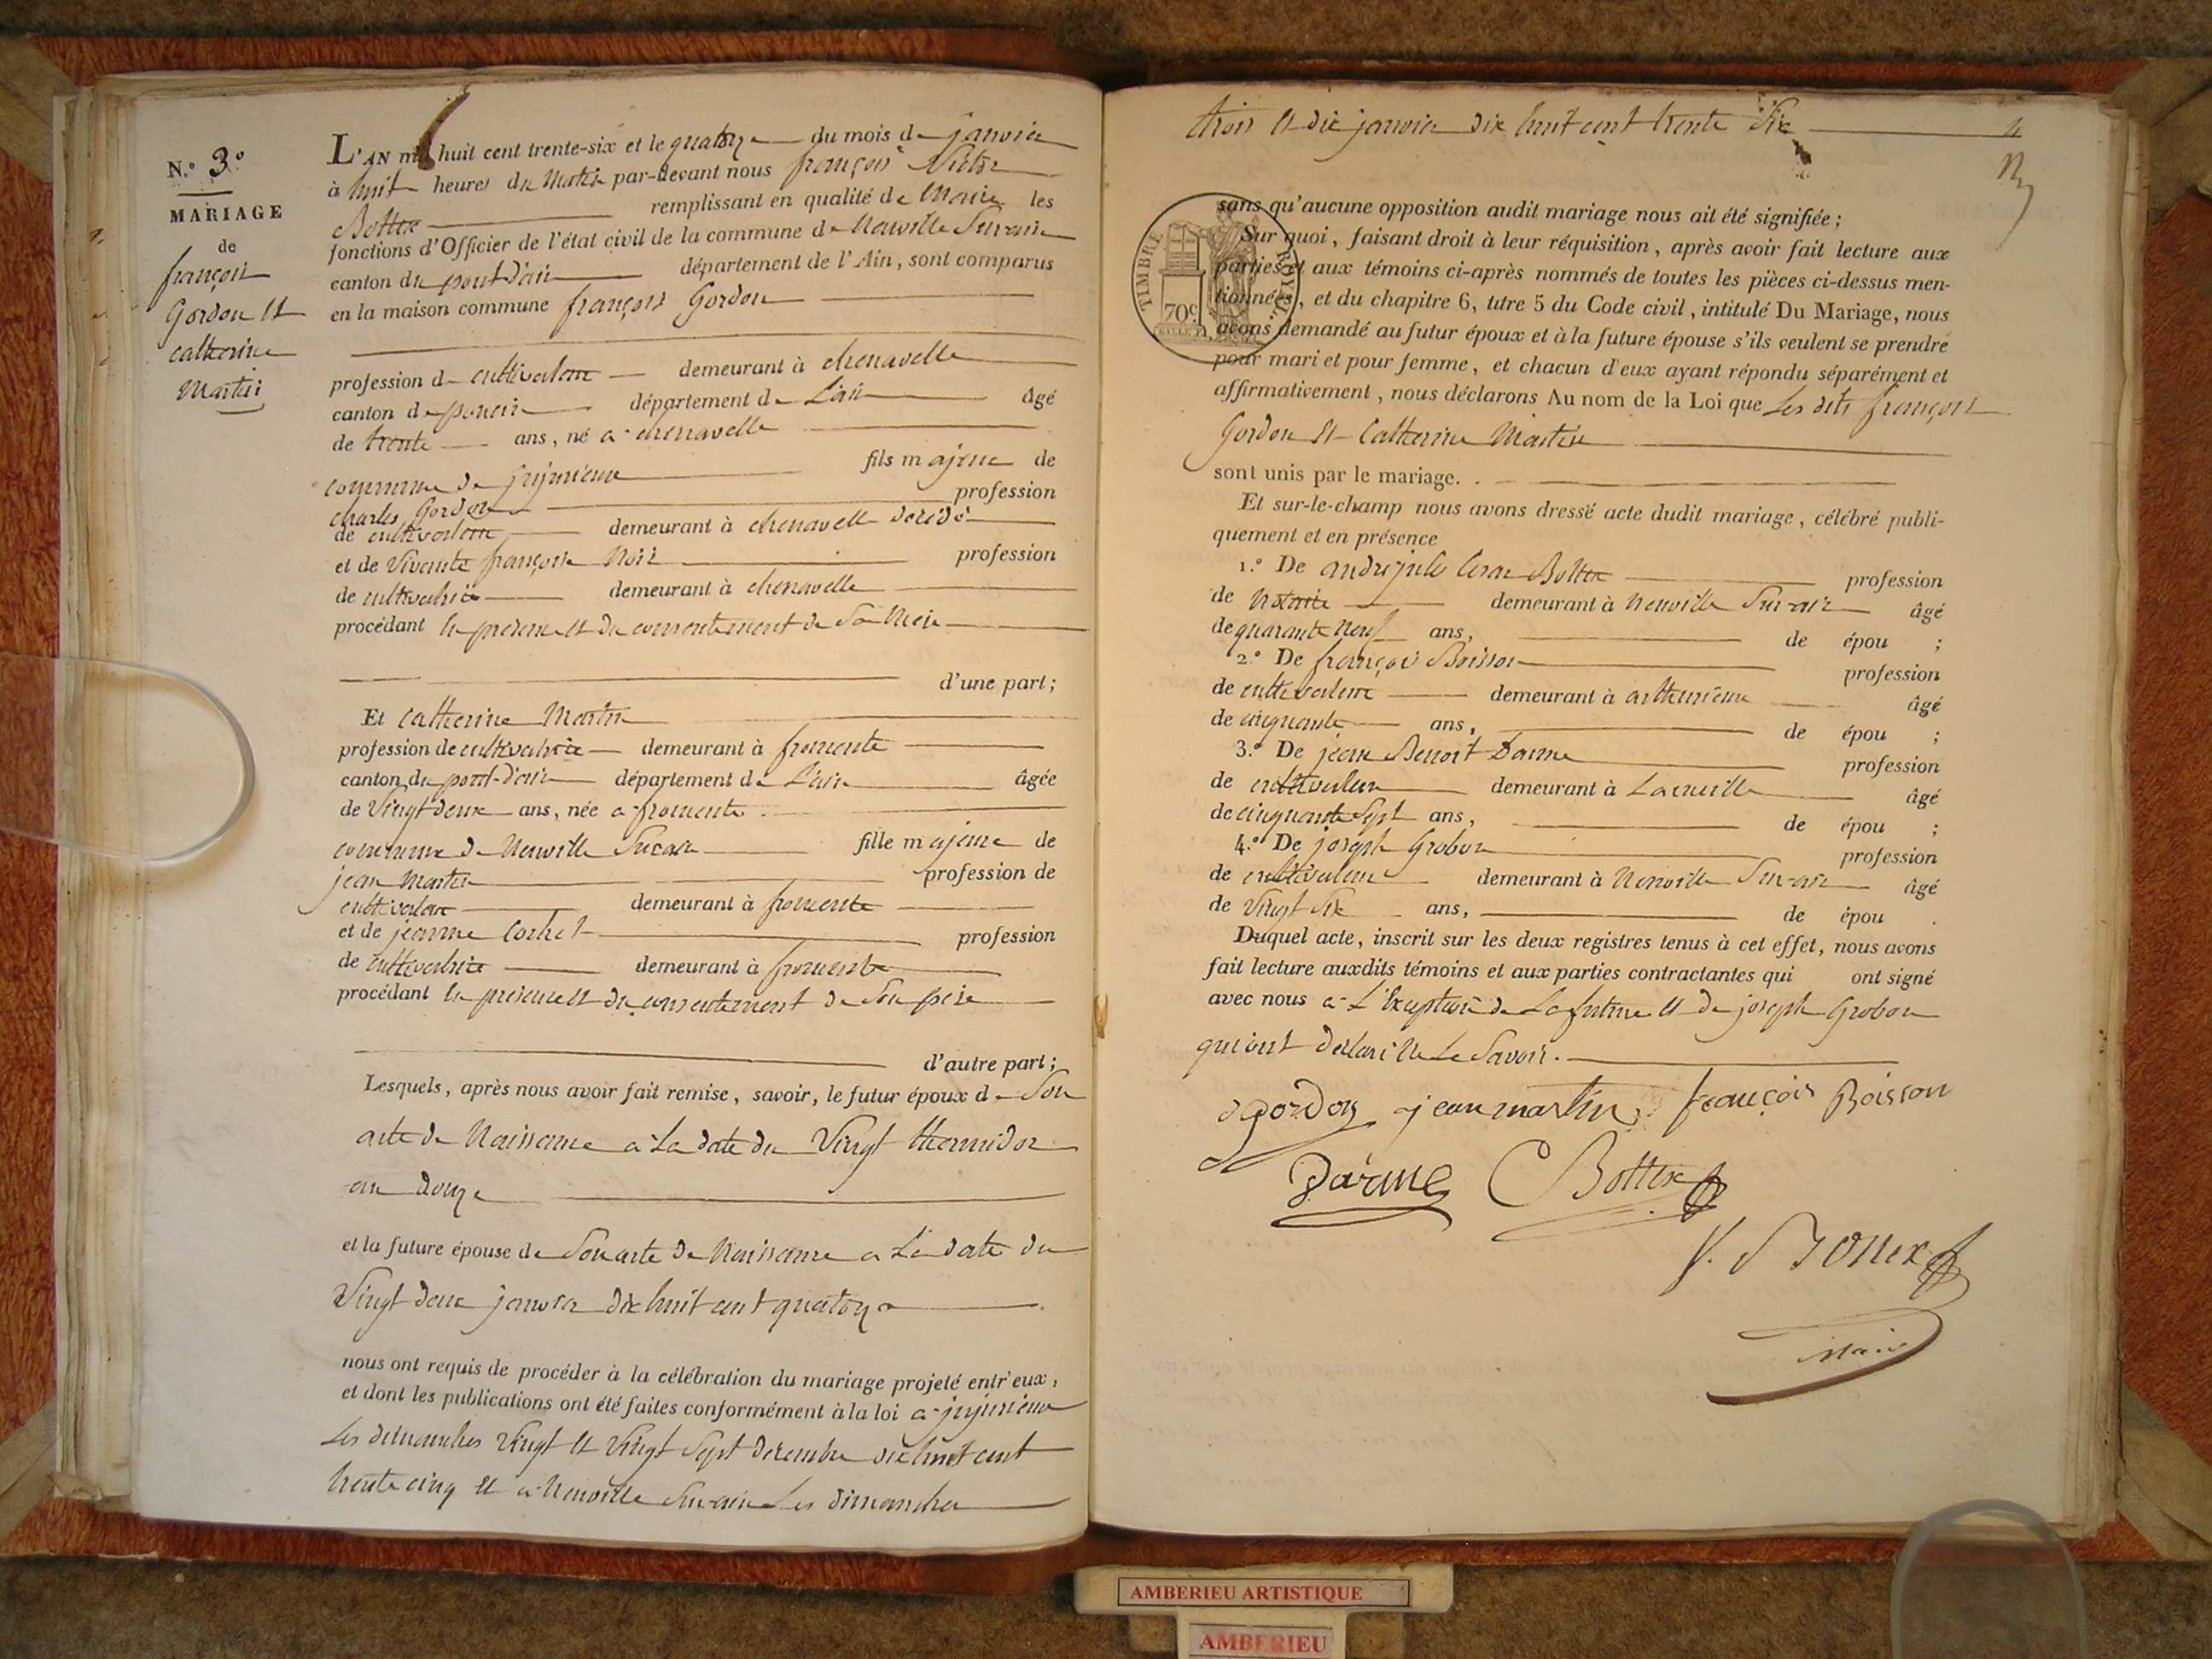 N.º 3º
MARIAGE
de
françois
Gordon et
catherine
Martin
L'AN mil huit cent trente-six et le quatorze du mois de janvier
à huit heures du Matin par-devant nous françois Victor
Bottex remplissant en qualité de Maire les
fonctions d'Officier de l'état civil de la commune de Neuville Surain
canton du pont-d'ain département de l'Ain, sont comparus
en la maison commune françois Gordon
profession de cultivateur demeurant à chenavelle
canton de poncin département de L'ain âgé
de trente ans, né a chenavelle
commune de jujurieux fils majeur de
charles Gordon profession
de cultivateur demeurant à chenavelle décédé
et de Vivante françoise Noir profession
de cultivatrice demeurant à chenavelle
procédant en présence et du consentement de Sa Mère
d'une part;
Et catherine Martin
profession de cultivatrice demeurant à fromente
canton du pont-d'ain département de L'ain âgée
de Vingt deux ans, née a fromente
commune de Neuville Surain fille majeure de
jean Martin profession de
cultivateur demeurant à fromente
et de jeanne profession
de cultivatrice demeurant à fromente
procédant en présence et du consentement de Son père
d'autre part;
Lesquels, après nous avoir fait remise, savoir, le futur époux de Son
acte de Naissance a La date du Vingt thermidor
an douze
et la future épouse de Son acte de Naissance a La date du
Vingt deux janvier dix huit cent quatorze
nous ont requis de procéder à la célébration du mariage projeté entr'eux,
et dont les publications ont été faites conformément à la loi a jujurieux
Les dimanches Vingt et Vingt Sept décembre dix huit cent
trente cinq et a Neuville Surain Les dimanches
trois et dix janvier dix huit cent trente Six
4
sans qu'aucune opposition audit mariage nous ait été signifiée;
Sur quoi, faisant droit à leur réquisition, après avoir fait lecture aux
parties et aux témoins ci-après nommés de toutes les pièces ci-dessus men-
tionnées, et du chapitre 6, titre 5 du Code civil, intitulé Du Mariage, nous
avons demandé au futur époux et à la future épouse s'ils veulent se prendre
pour mari et pour femme, et chacun d'eux ayant répondu séparément et
affirmativement, nous déclarons Au nom de la Loi que Les dits françois
Gordon et Catherine Martin
sont unis par le mariage.
TIMBRE ROYAL
70c
Et sur-le-champ nous avons dressé acte dudit mariage, célébré publi-
quement et en présence
1.º De andré jules César Bottex profession
de Notaire demeurant à Neuville Surain âgé
de quarante Neuf ans, de épou ;
2.º De françois Boisson profession
de cultivateur demeurant à âgé
de cinquante ans, de épou ;
3.º De jean Benoit Darme profession
de cultivateur demeurant à Lacueille âgé
de cinquante Sept ans, de épou ;
4.º De joseph Grobon profession
de cultivateur demeurant à Neuville Surain âgé
de Vingt Six ans, de épou .
Duquel acte, inscrit sur les deux registres tenus à cet effet, nous avons
fait lecture auxdits témoins et aux parties contractantes qui ont signé
avec nous a L'Exception de La future et de joseph Grobon
qui ont déclaré Ne Le Savoir.
gordon jean martin françois Boisson
Darme C Bottex
V. Bottex
Maire
AMBERIEU ARTISTIQUE
AMBERIEU